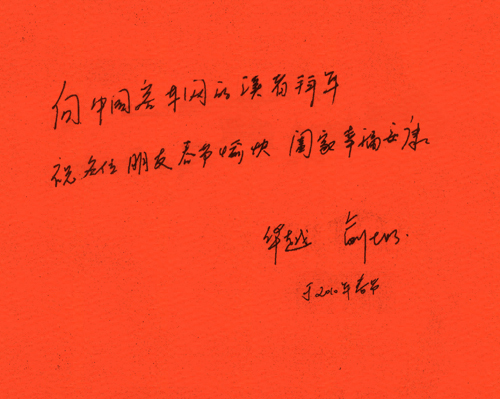 向中国客车网的读者拜年
祝各位朋友春节愉快 阖家幸福安康
华越
于2010年春节